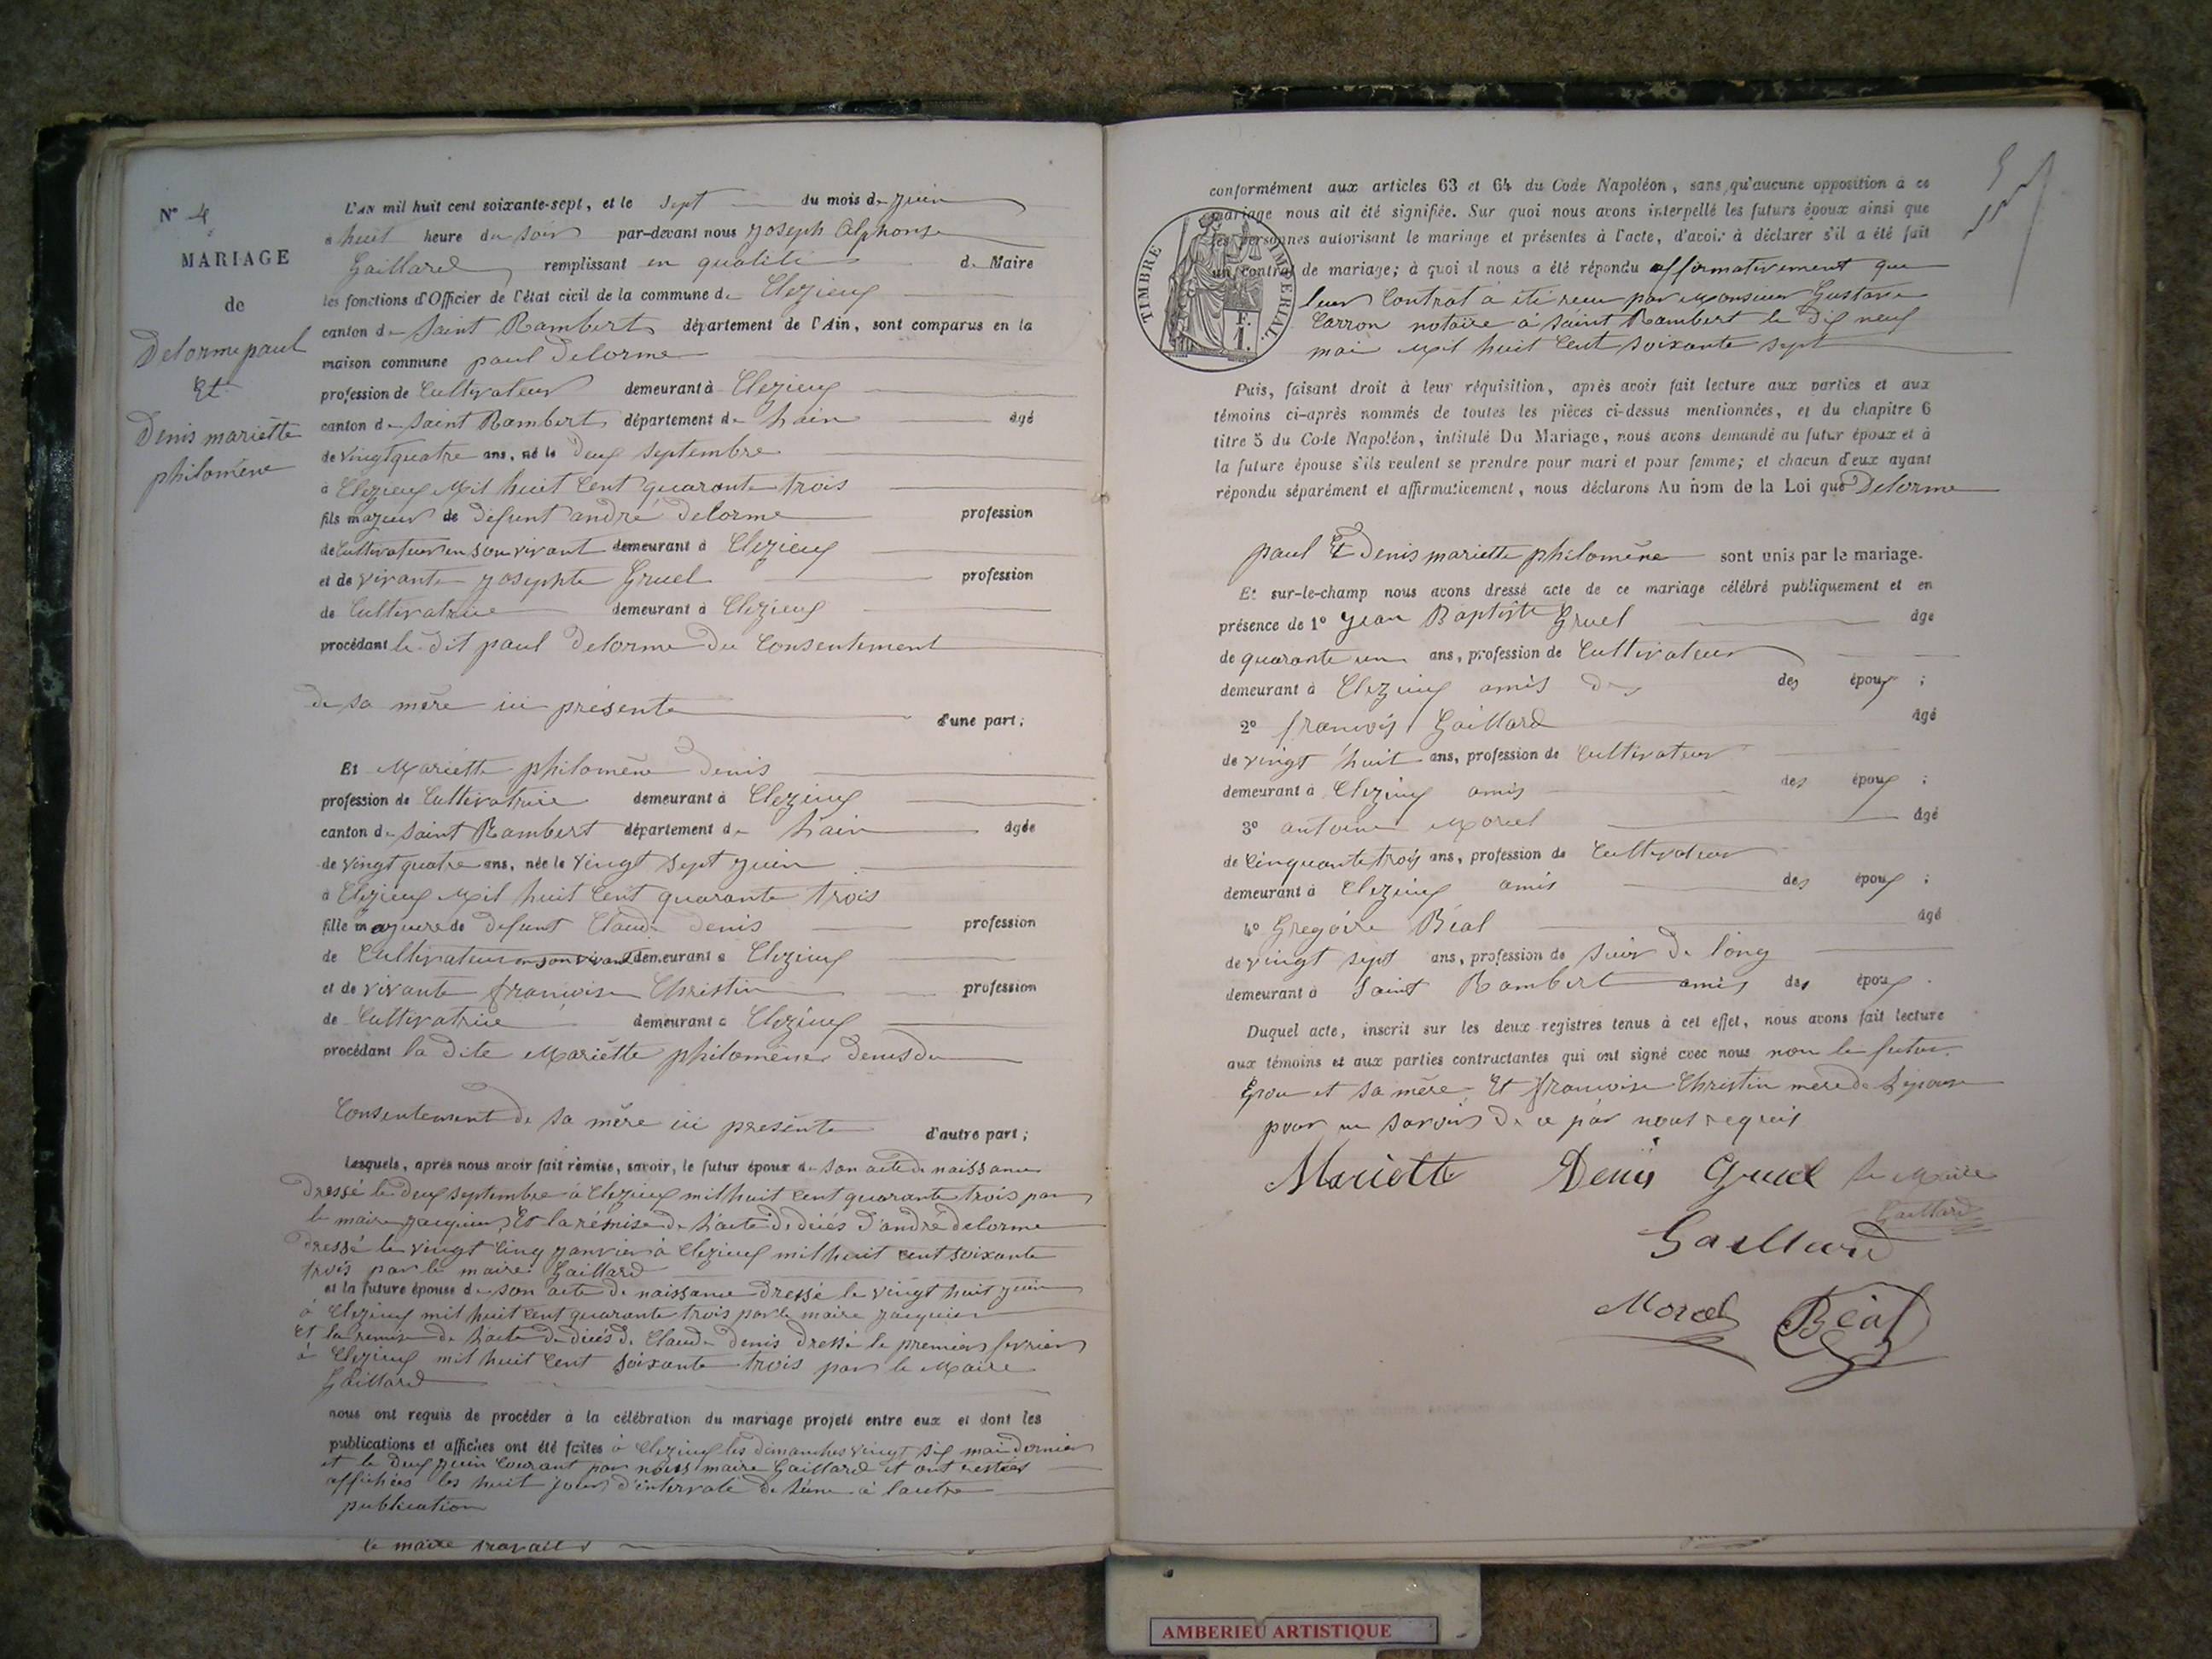 N° 4
MARIAGE
de
Delorme paul
Et
Denis mariette
philomène
L'AN mil huit cent soixante-sept, et le sept du mois de juin
à huit heure du soir par-devant nous joseph Alphonse
Gaillard remplissant en qualité de Maire
les fonctions d'Officier de l'état civil de la commune de Clezieux
canton de Saint Rambert département de l'Ain, sont comparus en la
maison commune paul Delorme
profession de Cultivateur demeurant à Clezieux
canton de Saint Rambert département de Lain âgé
de vingt quatre ans, né le Deux septembre
à Clezieux Mil huit Cent quarante trois
fils majeur de défunt andré Delorme profession
de Cultivateur en son vivant demeurant à Clezieux
et de vivante josephte Gruel profession
de Cultivatrice demeurant à Clezieux
procédant le dit paul Delorme du Consentement
de sa mère ici présente d'une part;
Et Mariette philomène Denis
profession de Cultivatrice demeurant à Clezieux
canton de Saint Rambert département de Lain âgée
de vingt quatre ans, née le vingt sept juin
à Clezieux Mil huit Cent quarante trois
fille majeure de defunt Claude Denis profession
de Cultivateur en son vivant demeurant à Clezieux
et de vivante francoise Christin profession
de Cultivatrice demeurant à Clezieux
procédant la dite Mariette philomène Denis du
Consentement de sa mère ici présente d'autre part;
Lesquels, après nous avoir fait remise, savoir, le futur époux de son acte de naissance
Dressé le deux septembre à Clezieux mil huit cent quarante trois par
le maire jacquier Et la rémise de L'acte de décés d'andré delorme
Dressé le vingt Cinq janvier à Clezieux mil huit cent soixante
trois par le maire Gaillard
et la future épouse de son acte de naissance Dressé le vingt huit juin
à Clezieux mil huit Cent quarante trois par le maire jacquier
Et la remise de L'acte de décés de Claude Denis Dressé le premier fevrier
à Clezieux mil huit Cent soixante trois par le Maire
Gaillard
nous ont requis de procéder à la célébration du mariage projeté entre eux et dont les
publications et affiches ont été faites à Clezieux les dimanches vingt six mai dernier
et le deux juin Courant par nous maire Gaillard et ont restées
affichées les huit jours d'intervale de Lune à lautre
publication
le maire
conformément aux articles 63 et 64 du Code Napoléon, sans qu'aucune opposition à ce
mariage nous ait été signifiée. Sur quoi nous avons interpellé les futurs époux ainsi que
les personnes autorisant le mariage et présentes à l'acte, d'avoir à déclarer s'il a été fait
un contrat de mariage; à quoi il nous a été répondu affirmativement que
leur Contrat à été recu par Monsieur Gustave
Carron notaire à Saint Rambert le Dix neuf
mai Mil huit Cent soixante sept
TIMBRE IMPERIAL.
F.
1.
Puis, faisant droit à leur réquisition, après avoir fait lecture aux parties et aux
témoins ci-après nommés de toutes les pièces ci-dessus mentionnées, et du chapitre 6
titre 5 du Code Napoléon, intitulé Du Mariage, nous avons demandé au futur époux et à
la future épouse s'ils veulent se prendre pour mari et pour femme; et chacun d'eux ayant
répondu séparément et affirmativement, nous déclarons Au nom de la Loi que Delorme
paul Et Denis mariette philomène sont unis par le mariage.
Et sur-le-champ nous avons dressé acte de ce mariage célébré publiquement et en
présence de 1° jean Baptiste Gruel âge
de quarante un ans, profession de Cultivateur
demeurant à Clezieux amis des époux ;
2° francois Gaillard âgé
de vingt huit ans, profession de Cultivateur
demeurant à Clezieux amis des époux ;
3° antoine Morel âgé
de Cinquante trois ans, profession de Cultivateur
demeurant à Clezieux amis des époux ;
4° Gregoire Béal âgé
de vingt sept ans, profession de Sieur De long
demeurant à Saint Rambert amis des époux .
Duquel acte, inscrit sur les deux registres tenus à cet effet, nous avons fait lecture
aux témoins et aux parties contractantes qui ont signé avec nous non le futur
Epou et sa mère Et francoise Christin mere de Lépouse
pour ne savoir De ce par nous requis
Mariette Denis Gruel le Maire
Gaillard
Gaillard
Morel Béal
AMBERIEU ARTISTIQUE